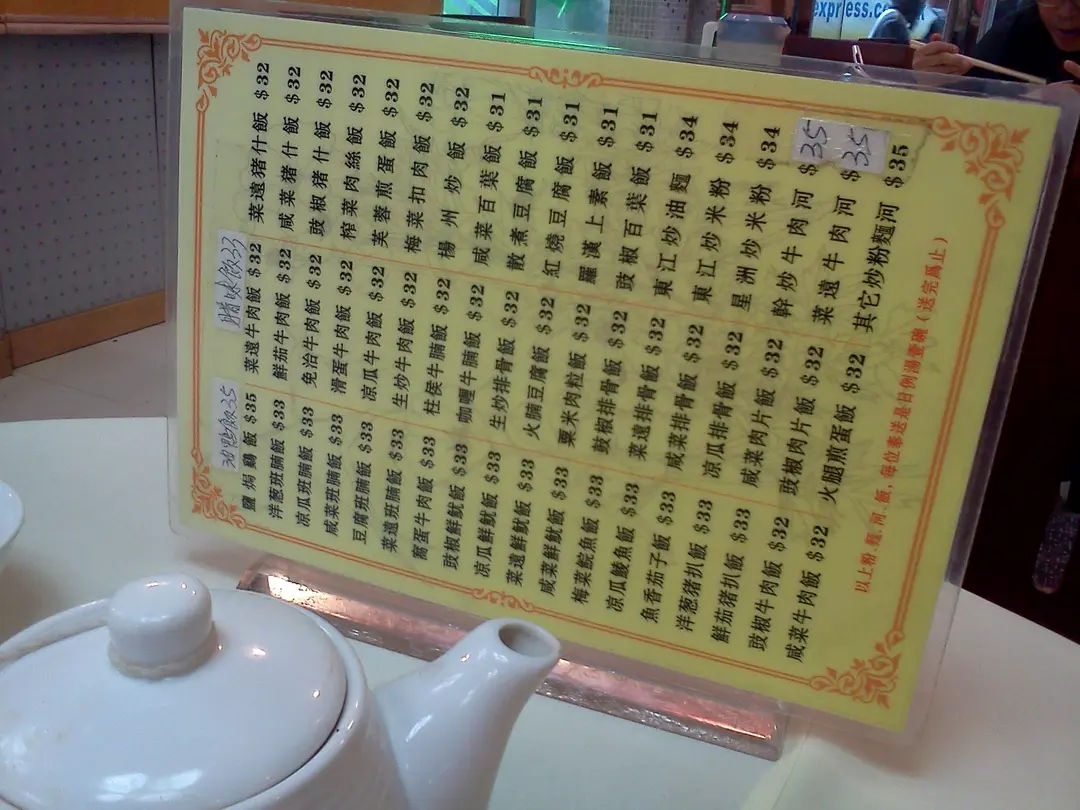 express.co
燒鴨飯35
鹽焗鷄飯 $35
洋葱班腩飯 $33
凉瓜班腩飯 $33
咸菜班腩飯 $33
豆腐班腩飯 $33
菜遠班腩飯 $33
窩蛋牛肉飯 $33
豉椒鮮魷飯 $33
凉瓜鮮魷飯 $33
菜遠鮮魷飯 $33
咸菜鮮魷飯 $33
梅菜鯇魚飯 $33
凉瓜鯪魚飯 $33
魚香茄子飯 $33
洋葱猪扒飯 $33
鮮茄猪扒飯 $33
豉椒牛肉飯 $32
咸菜牛肉飯 $32
腊味飯33
菜遠牛肉飯 $32
鮮茄牛肉飯 $32
免治牛肉飯 $32
滑蛋牛肉飯 $32
凉瓜牛肉飯 $32
生炒牛肉飯 $32
柱侯牛腩飯 $32
咖喱牛腩飯 $32
生炒排骨飯 $32
火腩豆腐飯 $32
粟米肉粒飯 $32
豉椒排骨飯 $32
菜遠排骨飯 $32
咸菜排骨飯 $32
凉瓜排骨飯 $32
咸菜肉片飯 $32
豉椒肉片飯 $32
火腿煎蛋飯 $32
菜遠猪什飯 $32
咸菜猪什飯 $32
豉椒猪什飯 $32
榨菜肉絲飯 $32
芙蓉煎蛋飯 $32
梅菜扣肉飯 $32
揚州炒飯 $32
咸菜百葉飯 $31
散煮豆腐飯 $31
紅燒豆腐飯 $31
羅漢上素飯 $31
豉椒百葉飯 $31
東江炒油麵 $34
東江炒米粉 $34
星洲炒米粉 $34
幹炒牛肉河 $35
菜遠牛肉河 $35
其它炒粉麵河 $35
以上粉.麵.河.飯,每位奉送是日例湯壹碗（送完爲止）